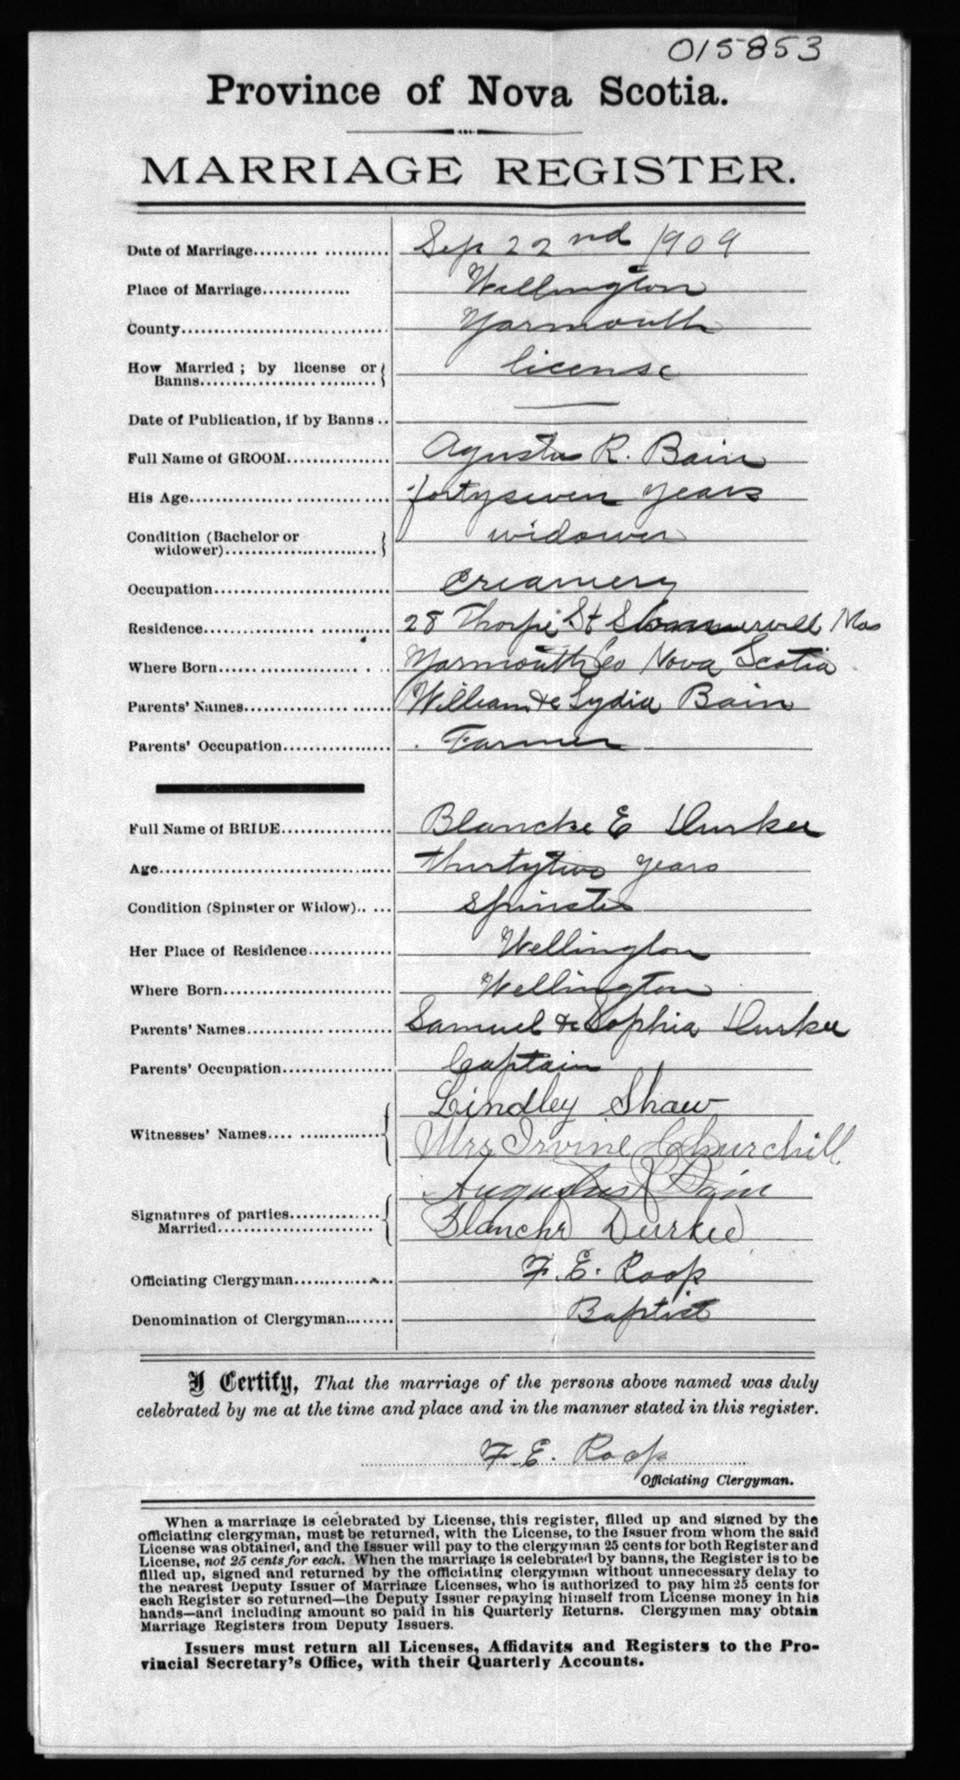 015853
Province of Nova Scotia.
MARRIAGE REGISTER.
Date of Marriage.......... .......... Sep 22nd 1909
Place of Marriage.............. Wellington
County.............................. Yarmouth
How Married ; by license or
Banns........................... license
Date of Publication, if by Banns .. —
Full Name of GROOM................ Agustus R. Bain
His Age............................... fortyseven years
Condition (Bachelor or
widower)........................... widower
Occupation........................... Creamery
Residence........................... 28 Thorpe St Sommervill Mas
Where Born...................... Yarmouth Co Nova Scotia
Parents' Names...................... William & Lydia Bain
Parents' Occupation................ Farmer
Full Name of BRIDE................ Blanche E Durkee
Age................................... thirtytwo years
Condition (Spinster or Widow).. ... Spinster
Her Place of Residence............ Wellington
Where Born......................... Wellington
Parents' Names...................... Samuel & Sophia Durkee
Parents' Occupation................ Captain
Lindley Shaw
Witnesses' Names.... ............. Mrs Irvine Churchill
Augustus R Bain
Signatures of parties..............
Married........................ Blanche Durkee
Officiating Clergyman.............. F. E. Roop
Denomination of Clergyman........ Baptist
I Certify, That the marriage of the persons above named was duly
celebrated by me at the time and place and in the manner stated in this register.
F. E. Roop
Officiating Clergyman.
When a marriage is celebrated by License, this register, filled up and signed by the
officiating clergyman, must be returned, with the License, to the Issuer from whom the said
License was obtained, and the Issuer will pay to the clergyman 25 cents for both Register and
License, not 25 cents for each. When the marriage is celebrated by banns, the Register is to be
filled up, signed and returned by the officiating clergyman without unnecessary delay to
the nearest Deputy Issuer of Marriage Licenses, who is authorized to pay him 25 cents for
each Register so returned—the Deputy Issuer repaying himself from License money in his
hands—and including amount so paid in his Quarterly Returns. Clergymen may obtain
Marriage Registers from Deputy Issuers.
Issuers must return all Licenses, Affidavits and Registers to the Pro-
vincial Secretary's Office, with their Quarterly Accounts.